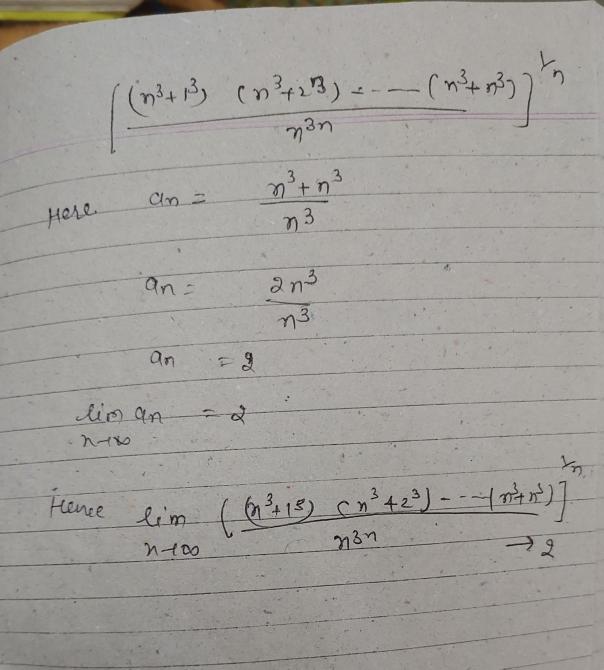 [ (n³+1³) (n³+2³) ----- (n³+n³) / n³ⁿ ]^1/n
Here an = n³+n³ / n³
an = 2n³ / n³
an = 2
lim an = 2
n→∞
Hence lim [ (n³+1³) (n³+2³) ---- (n³+n³) / n³ⁿ ]^1/n
n→∞ → 2